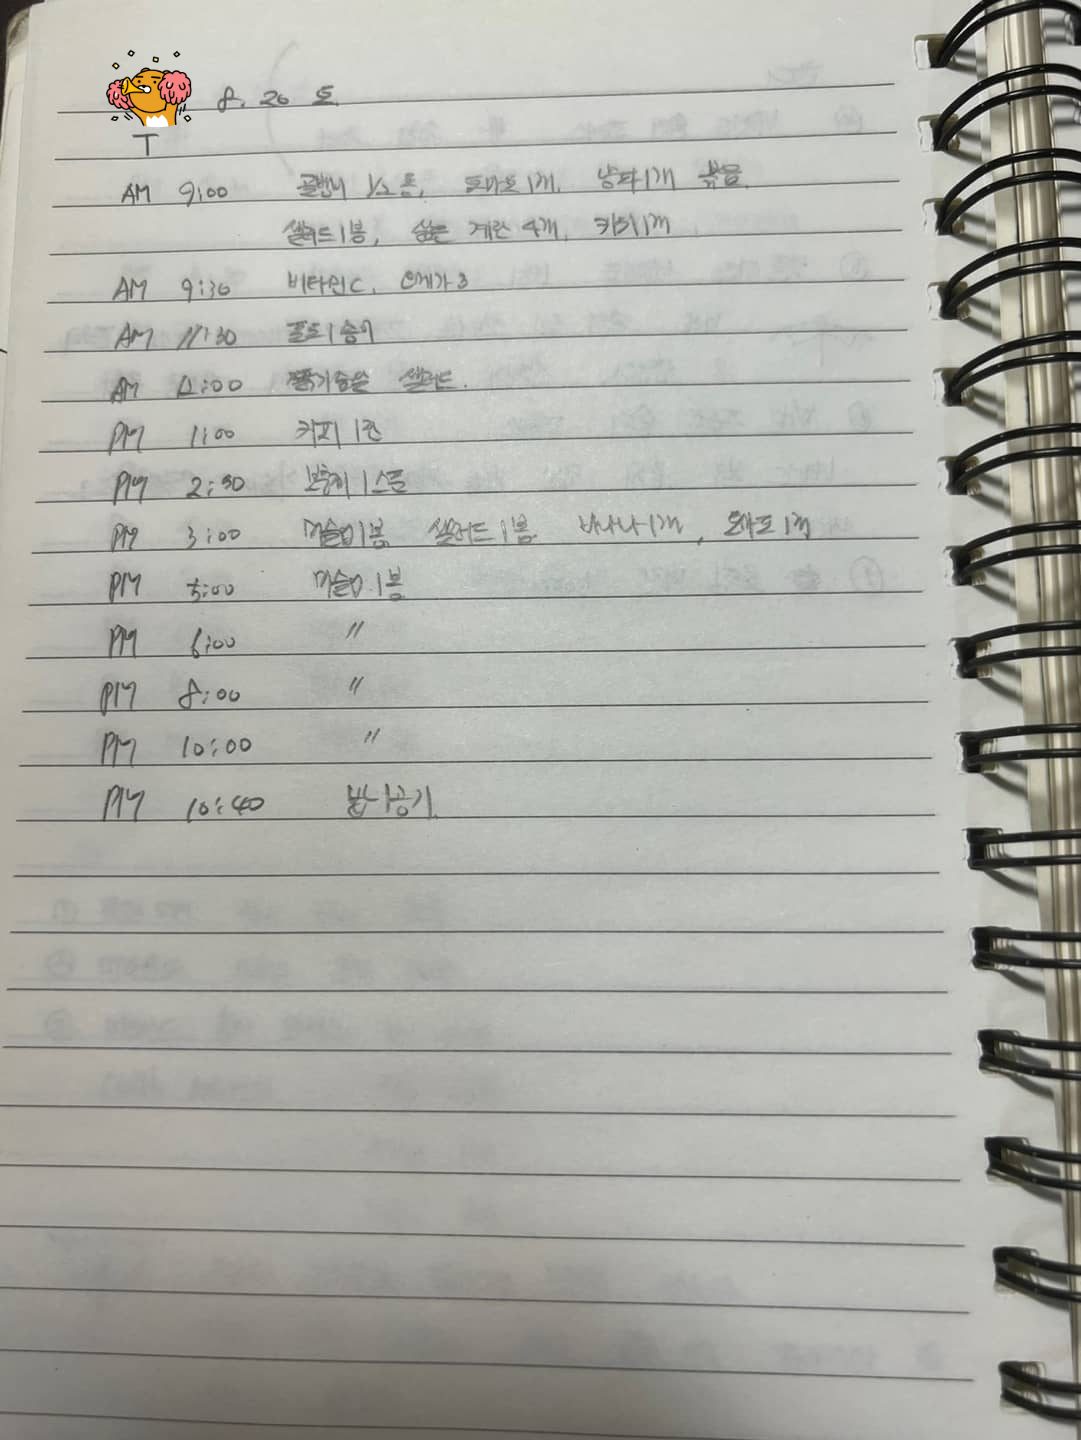 8. 26 토
T
AM 9:00 골뱅이 1/2통, 토마토1개, 양파1개 볶음.
샐러드1봉, 삶은 계란 4개, 키위1개
AM 9:30 비타민C, 오메가3
AM 11:30 포도1송이
AM 12:00 샐러드.
PM 1:00 커피1잔
PM 2:30 보충제1스푼
PM 3:00 머슬밀1봉 샐러드1봉 바나나1개, 토마토1개
PM 5:00 머슬밀1봉
PM 6:00 〃
PM 8:00 〃
PM 10:00 〃
PM 10:40 밥1공기.